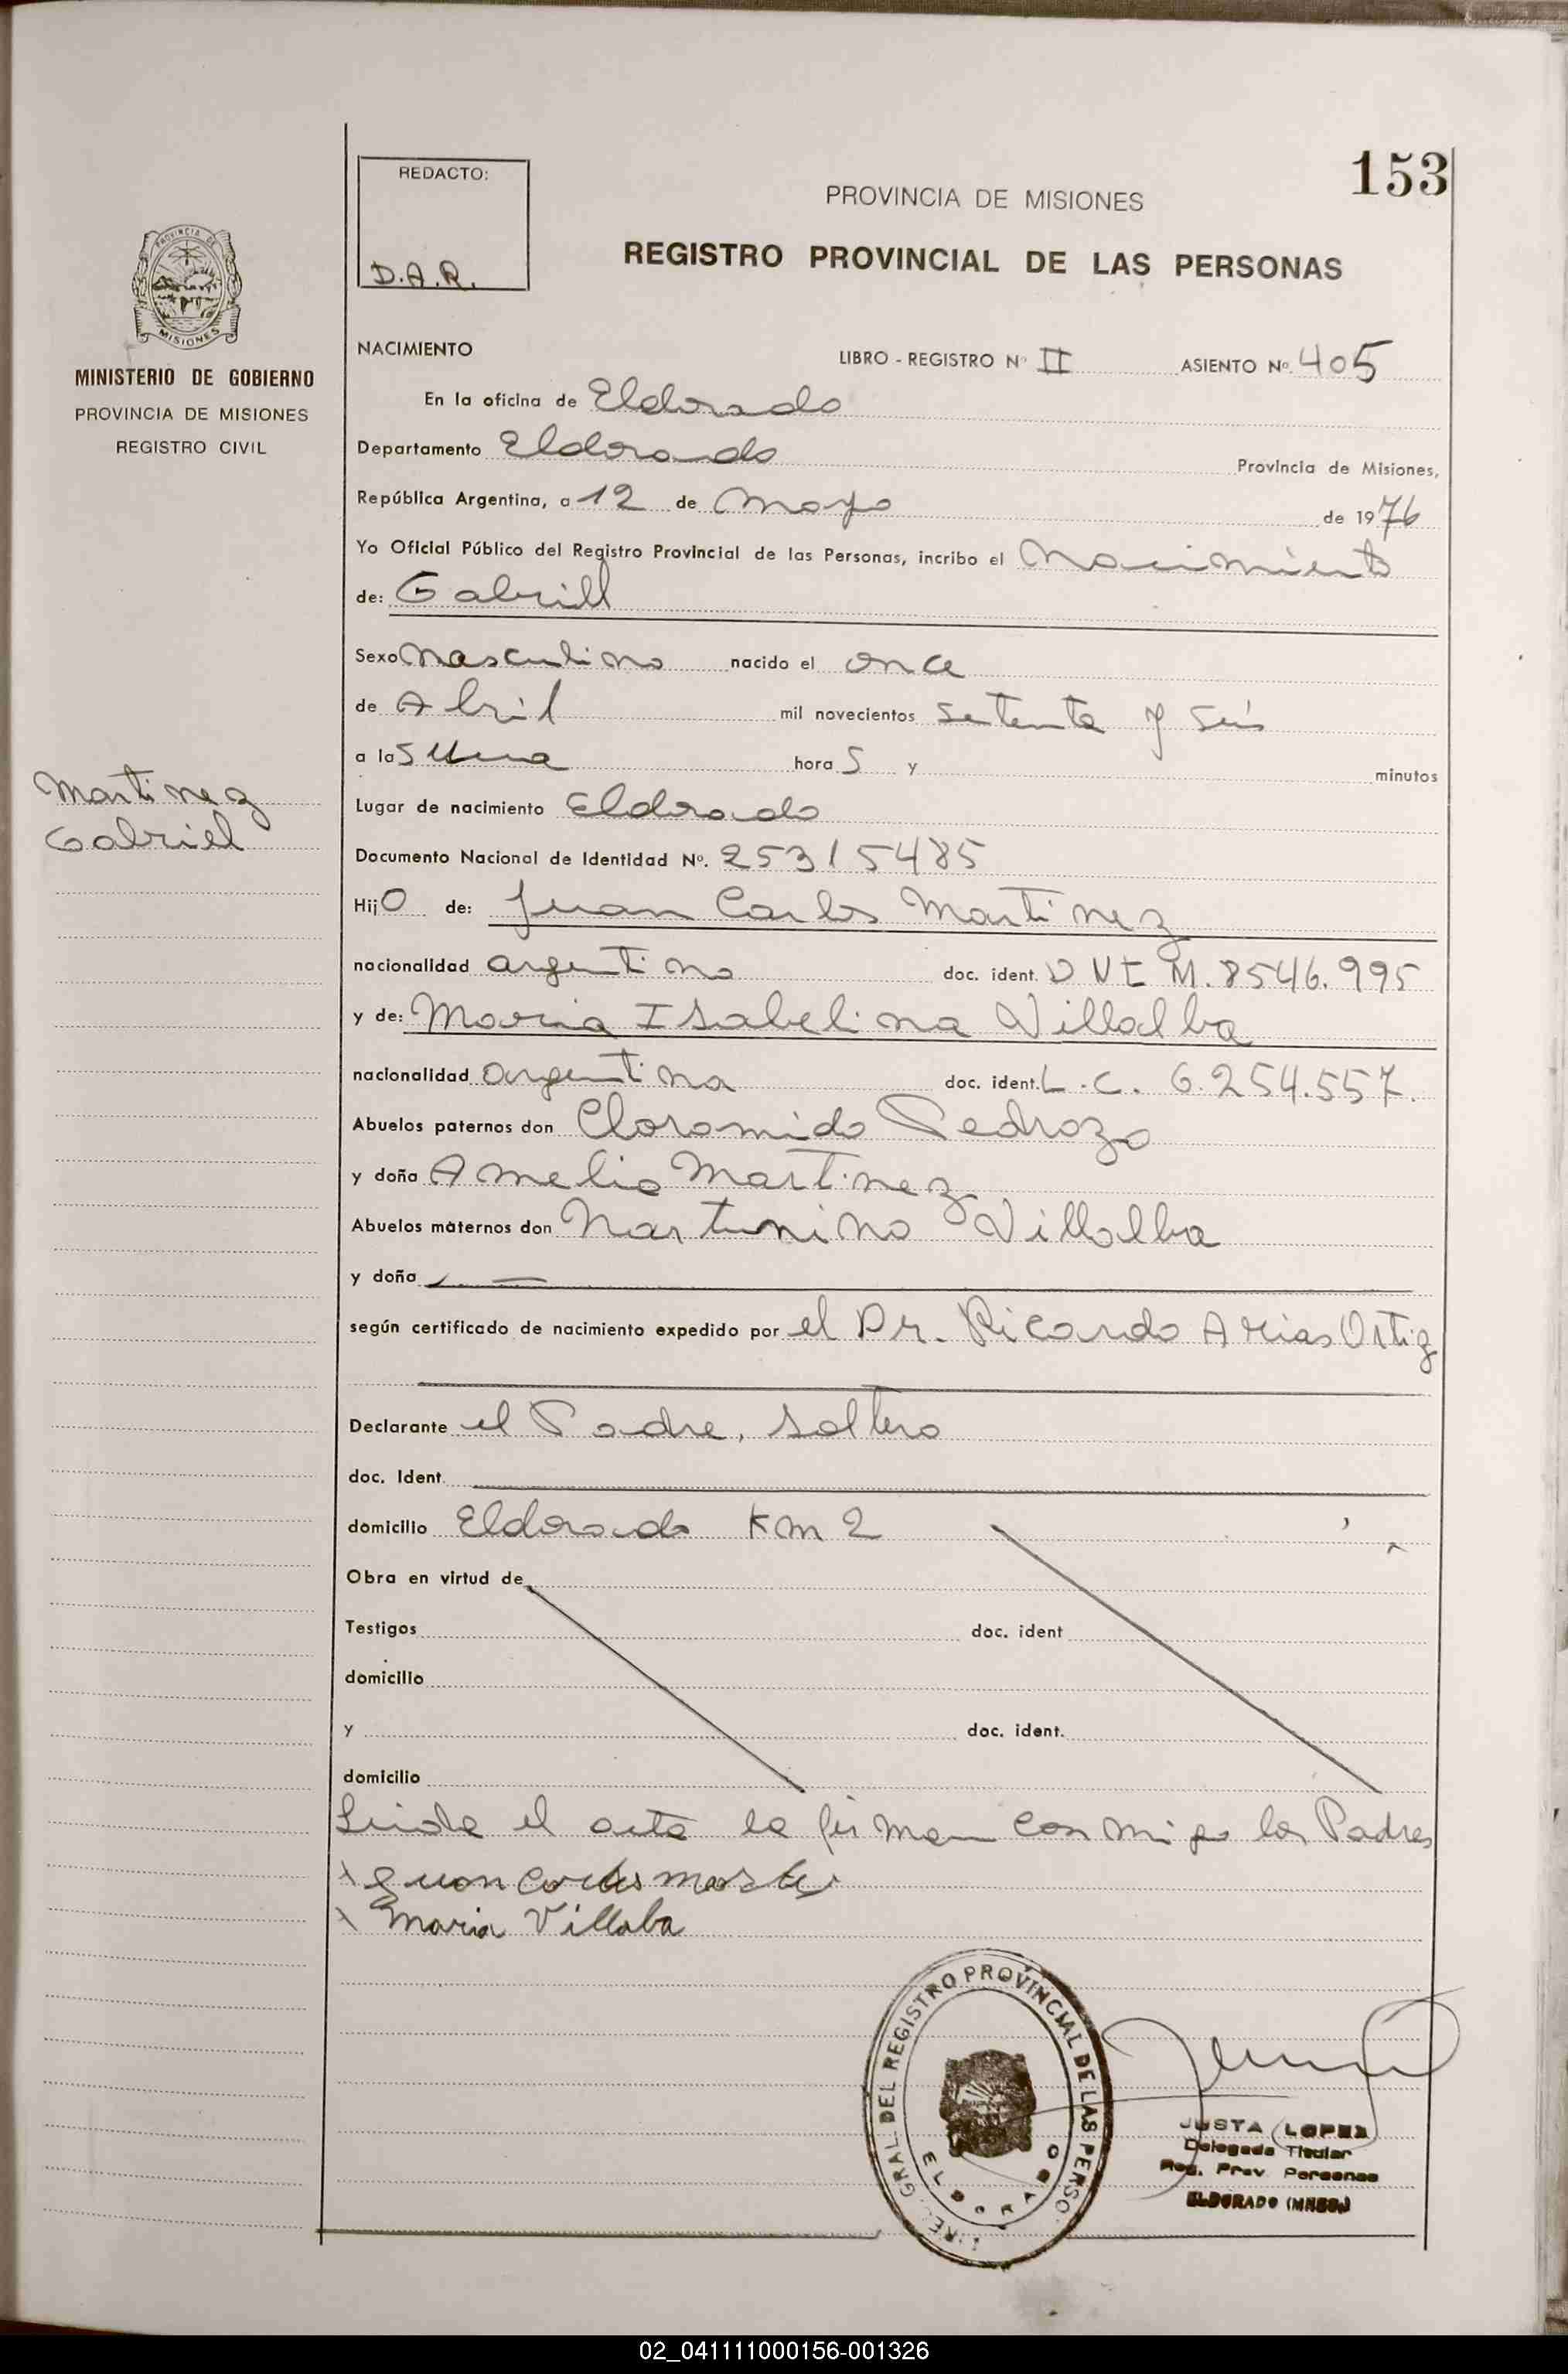 153
REDACTO:
D.A.R.
PROVINCIA DE MISIONES
REGISTRO PROVINCIAL DE LAS PERSONAS
PROVINCIA DE MISIONES
MINISTERIO DE GOBIERNO
PROVINCIA DE MISIONES
REGISTRO CIVIL
NACIMIENTO LIBRO - REGISTRO Nº II ASIENTO Nº 405
En la oficina de Eldorado
Departamento Eldorado Provincia de Misiones,
República Argentina, a 12 de Mayo de 1976
Yo Oficial Público del Registro Provincial de las Personas, incribo el Nacimiento
de: Gabriel
Sexo Masculino nacido el once
de Abril mil novecientos setenta y seis
a las una hora s y minutos
Martinez
Gabriel
Lugar de nacimiento Eldorado
Documento Nacional de Identidad Nº. 25315485
Hijo de: Juan Carlos Martinez
nacionalidad argentino doc. ident. DNI M. 8546.995
y de: Maria Isabelina Villalba
nacionalidad argentina doc. ident. L.C. 6.254.557.
Abuelos paternos don Cloromido Pedrozo
y doña Amelia Martinez
Abuelos maternos don Villalba
y doña
según certificado de nacimiento expedido por el Dr. Ricardo Arias Ortiz
Declarante el Padre, soltero
doc. Ident.
domicilio Eldorado Km 2
Obra en virtud de
Testigos doc. ident
domicilio
y doc. ident.
domicilio
Leida el acta la firman conmigo los Padres
Juan Carlos
Maria Villalba
GRAL. DEL REGISTRO PROVINCIAL DE LAS PERSO
ELDORADO
JUSTA LOPEZ
Delegada Titular
Reg. Prov. Personas
ELDORADO (MNES.)
02_041111000156-001326